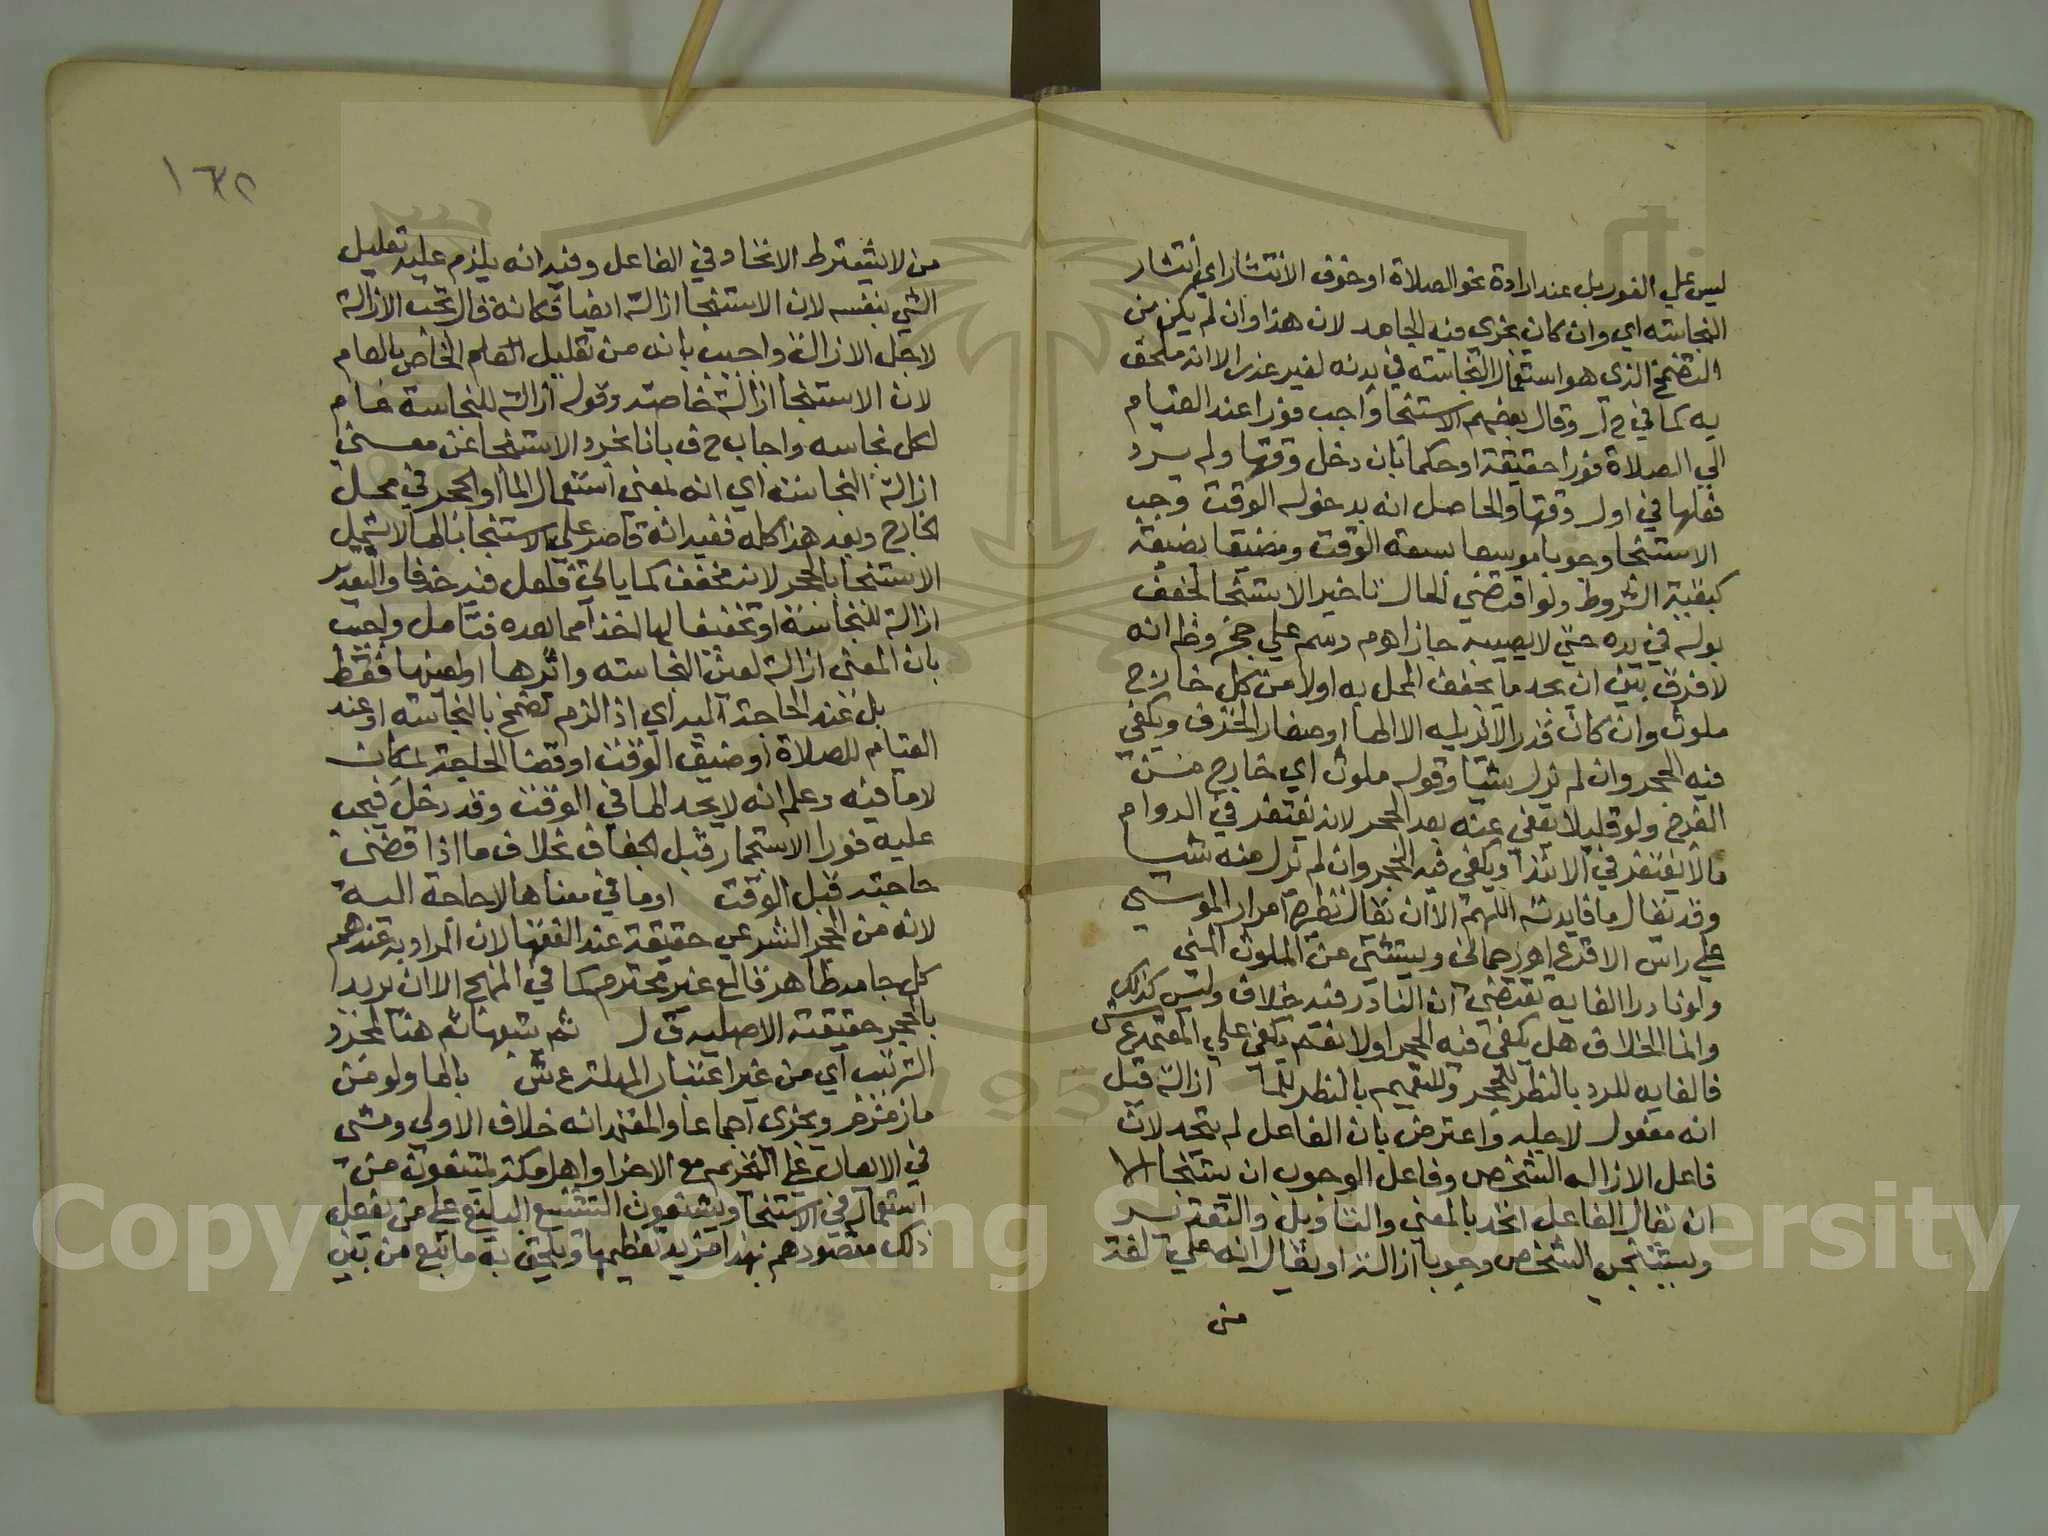 ليس علي الفور بل عند ارادة نحو الصلاة او خوف الانتشار اي انتشار
النجاسه اي وان كان يجزي فيه الجامد لان هذا وان لم يكن من
التضمخ الذي هو استعمال النجاسه في بدنه لغير عذر الا انه ملحق
به كما في ح ل وقال بعضهم الاستنجا واجب فورا عند القيام
الي الصلاة فورا حقيقة او حكما بان دخل وقتها ولم يرد
فعلها في اول وقتها والحاصل انه بدخول الوقت وجب
الاستنجا وجوبا موسعا بسعة الوقت ومضيقا بضيقه
كبقية الشروط ولو اقتضي الحال تاخير الاستنجا فجفف
بوله في يده حتي لا يصيبه جاز اه م ر سم علي حج وظ انه
لا فرق بين ان يجد ما يجفف المحل به اولا من كل خارج
ملوث وان كان قدرا لا يزيله الا الما او صغار الخزف ويكفي
فيه الحجر وان لم يزل شيا وقوله ملوث اي خارج من
الفرج ولو قليلا يعفي عنه بعد الحجر لانه يغتفر في الدوام
مالا يغتفر في الابتدا ويكفي فيه الحجر وان لم يزل منه شيا
وقد يقال ما فايدته اللهم الا ان يقال نظيره امرار الموسي
علي راس الاقرع اه زحماني ويستثني من الملوث المني
ولو نادرا الغاية تقتضي ان النادر فيه خلاف وليس كذلك
وانما الخلاف هل يكفي فيه الحجر اولا نعم يكفي علي المعتمد ع ش
فالغايه للرد بالنظر للحجر وللتعميم بالنظر للما ازالة قيل
انه مفعول لاجله واعترض بان الفاعل لم يتحد لان
فاعل الازاله الشخص وفاعل الوجوب ان يستنجا الا
ان يقال الفاعل اتحد بالمعني والتاويل والتقدير
ويستنجي الشخص وجوبا ازالة او يقال انه علي لغة
من
١٦٢
من لا يشترط الاتحاد في الفاعل وفيه انه يلزم عليه تعليل
الشي بنفسه لان الاستنجا ازالة ايضا فكانه قال تجب الازالة
لاجل الازالة واجيب بانه من تعليل الخاص بالعام
لان الاستنجا ازالة خاصه وقوله ازالة للنجاسة عام
لكل نجاسه واجاب ح ف بانا نجرد الاستنجا عن معني
ازالة النجاسة اي انه بمعني استعمال الما او الحجر في محل
الخارج وبعد هذا كله ففيه انه قاصر علي الاستنجا بالما لا يشمل
الاستنجا بالحجر لانه مخفف كما ياتي فلعل فيه حذفا والتقدير
ازالة للنجاسة او تخفيفا لها اخذا مما بعده فتامل واجيب
بان المعني ازالة لعين النجاسه واثرها او لعينها فقط
بل عند الحاجة اليه اي اذا لزم تضمخ بالنجاسه او عند
القيام للصلاة او ضيق الوقت او قضا الحاجة بمكان
لا ما فيه وعلم انه لا يجد الما في الوقت وقد دخل فيجب
عليه فورا الاستجمار قبل الجفاف بخلاف ما اذا قضي
حاجته قبل الوقت او ما في معناها لا حاجة اليه
لانه من الحجر الشرعي حقيقة عند الفقها لان المراد به عندهم
كل جامد طاهر قالع غير محترم كما في المنهج الا ان يريد
بالحجر حقيقته الاصليه ق ل ثم هنا لمجرد
الترتيب اي من غير اعتبار المهلة ع ش بالما ولو من
ما زمزم ويجزي اجماعا والمعتمد انه خلاف الاولي ومشي
في الايعاب علي التحريم مع الاجزا واهل مكة يمتنعون من
استعماله في الاستنجا ويشنعون التشنيع البليغ علي من يفعل
ذلك مقصودهم بهذا مزيد تعظيمها ويلحق به ما نبع من بين